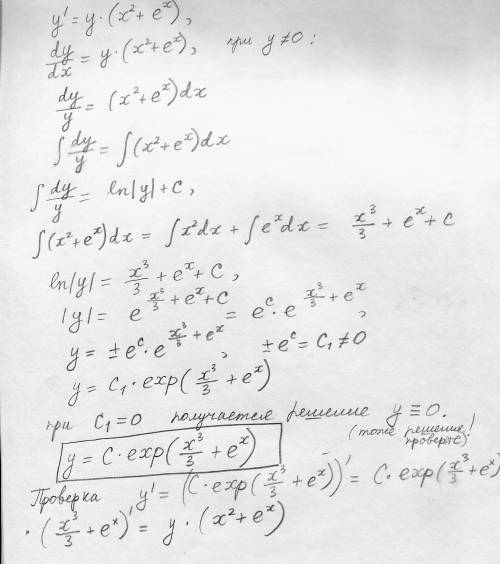 y' = y·(x² + eˣ),
dy/dx = y·(x² + eˣ), при y ≠ 0 :
dy/y = (x² + eˣ)dx
∫ dy/y = ∫(x² + eˣ)dx
∫ dy/y = ln|y| + C,
∫(x² + eˣ)dx = ∫x²dx + ∫eˣdx = x³/3 + eˣ + C
ln|y| = x³/3 + eˣ + C,
|y| = e^(x³/3 + eˣ + C) = e^C · e^(x³/3 + eˣ),
y = ± e^C · e^(x³/3 + eˣ), ± e^C = C₁ ≠ 0
y = C₁ · exp(x³/3 + eˣ)
при C₁ = 0 получается решение y ≡ 0.
(тоже решение, проверьте)!
y = C · exp(x³/3 + eˣ)
Проверка y' = (C · exp(x³/3 + eˣ))' = C · exp(x³/3 + eˣ)
· (x³/3 + eˣ)' = y · (x² + eˣ)